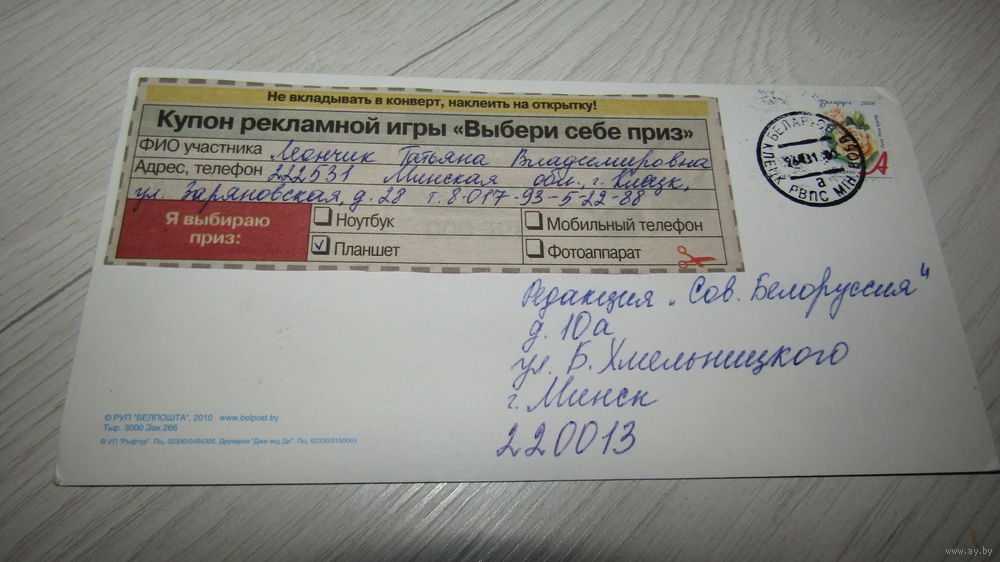 Не вкладывать в конверт, наклеить на открытку!
Купон рекламной игры «Выбери себе приз»
ФИО участника Мончик Татьяна Владимировна
Адрес, телефон 222531 Минская обл., г. Клецк,
ул. Заряновская, д. 28 т. 8-017-93-5-22-88
Я выбираю приз:
Ноутбук
Мобильный телефон
Планшет
Фотоаппарат
Беларусь 2008
A
БЕЛАРУСЬ
КЛЕЦК РВПС МІН.
а
Редакция „Сов. Белоруссия“
д. 10а
ул. Б. Хмельницкого
г. Минск
220013
© РУП "БЕЛПОШТА", 2010 www.belpost.by
Тыр. 3000 Зак.266
© УП "Рыфтур". Ліц. 02330/0494305. Друкарня "Джи энд Ди". Ліц. 02330/0150065
www.ay.by